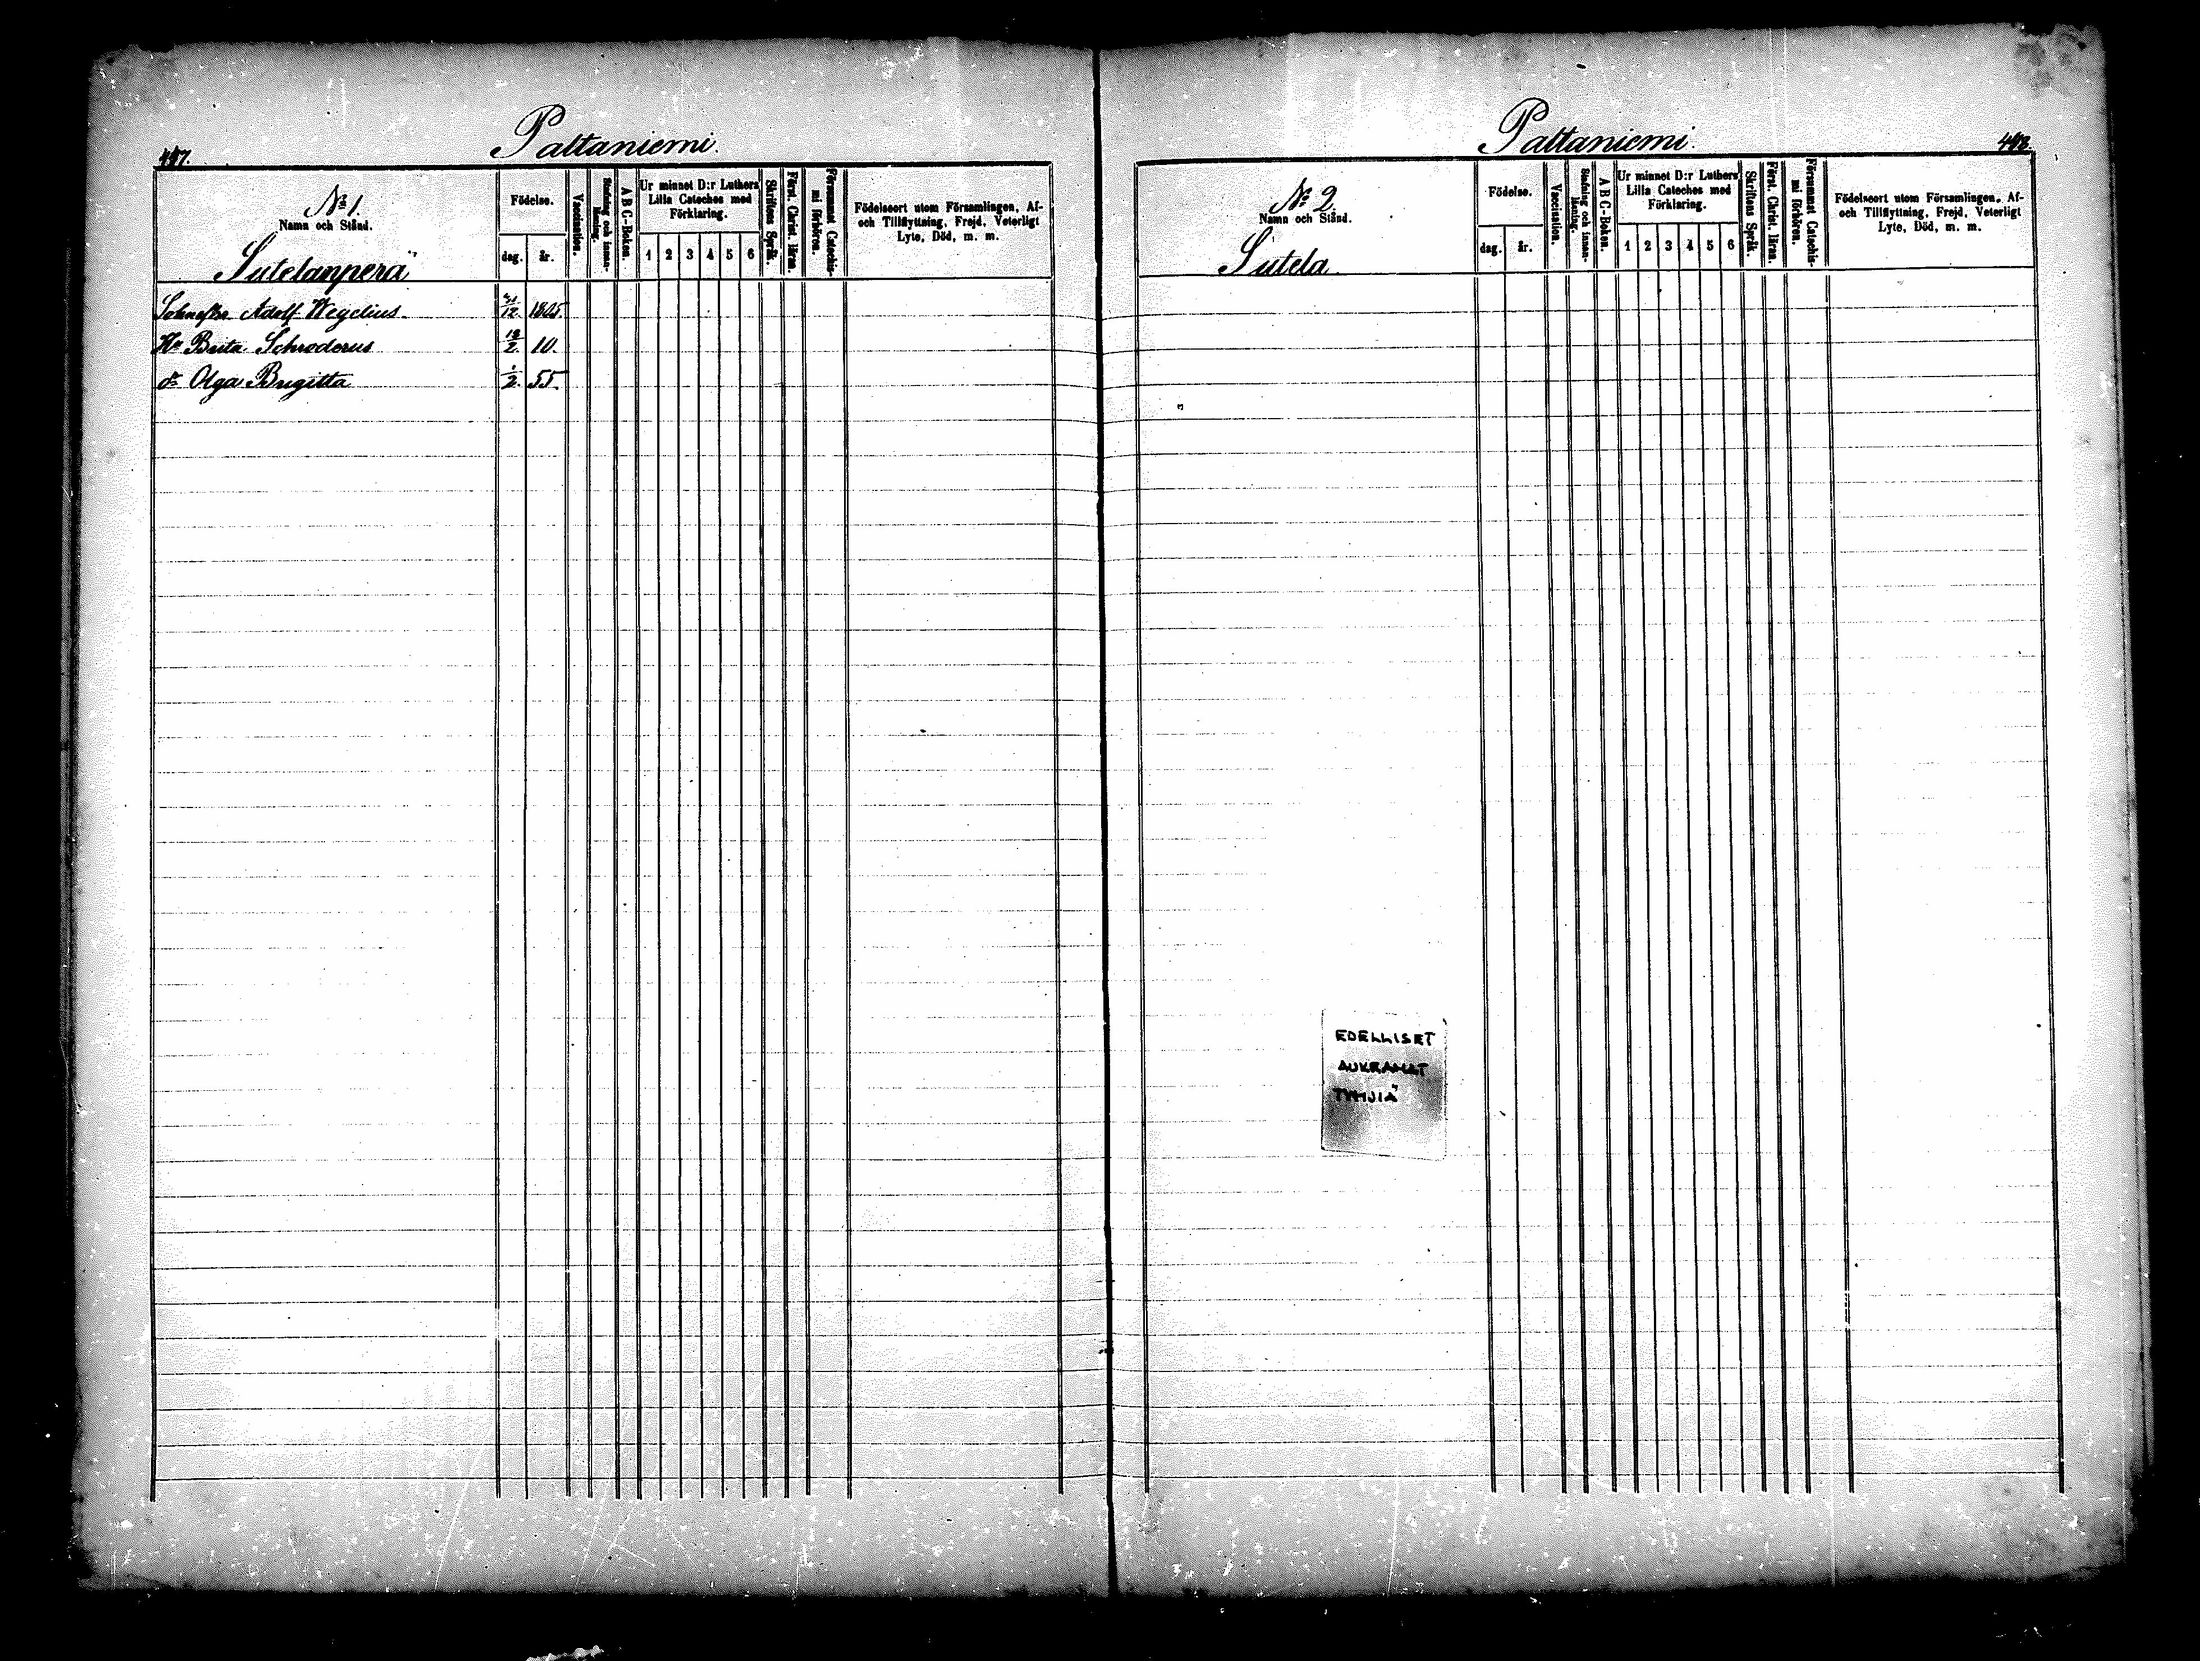 497.
Paltaniemi.
No 1.
Namn och Stånd.
Sutelanperä
Födelse.
dag.
år.
Vaccination.
Stafning och innan-läsning.
A B C-Boken.
Ur minnet D:r Luthers
Lilla Cateches med
Förklaring.
1 2 3 4 5 6
Skriftens Språk.
Först. Christ. läran.
Försummat Catechis-
mi förhören.
Födelseort utom Församlingen, Af-
och Tillflyttning, Frejd, Veterligt
Lyte, Död, m. m.
Adolf Wegelius. /12. 1805.
Hu Brita Schroderus 18/2. 10.
dr Olga Brigitta 1/2. 55.
Paltaniemi.
498.
No 2.
Namn och Stånd.
Sutela.
Födelse.
dag.
år.
Vaccination.
Stafning och innan-läsning.
A B C-Boken.
Ur minnet D:r Luthers
Lilla Cateches med
Förklaring.
1 2 3 4 5 6
Skriftens Språk.
Först. Christ. läran.
Försummat Catechis-
mi förhören.
Födelseort utom Församlingen, Af-
och Tillflyttning, Frejd, Veterligt
Lyte, Död, m. m.
EDELLISET
AUKEAMAT
TYHJIÄ